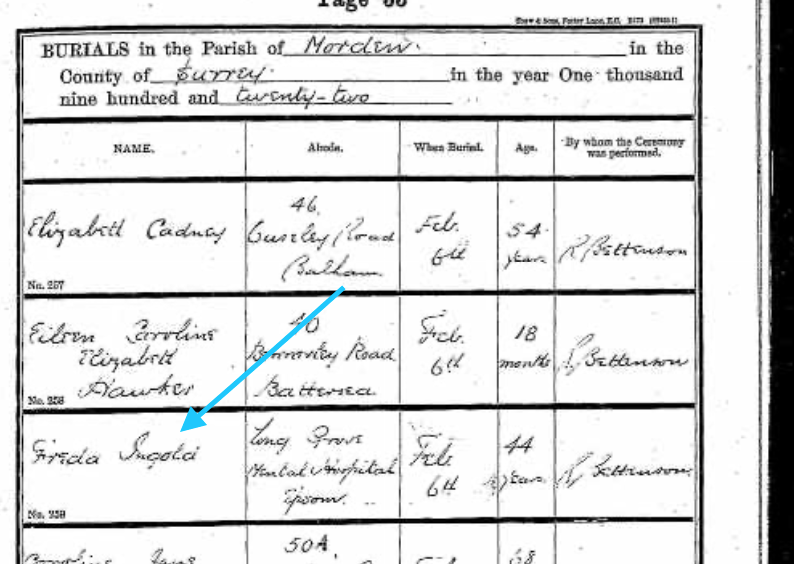 BURIALS in the Parish of Morden. in the
County of Surrey. in the year One thousand
nine hundred and twenty-two
NAME. Abode. When Buried. Age. By whom the Ceremony was performed.
Elizabeth Cadney
No. 257
46,
Road
Balham
Feb.
6th
54
years
R Bettenson
Eileen Caroline
Elizabeth
Hawker
No. 258
40
Road
Battersea
Feb.
6th
18
months
R Bettenson
Freda Ingold
No. 259
Long Grove
Mental Hospital
Epsom.
Feb
6th
44
years
R Bettenson
50A,
68